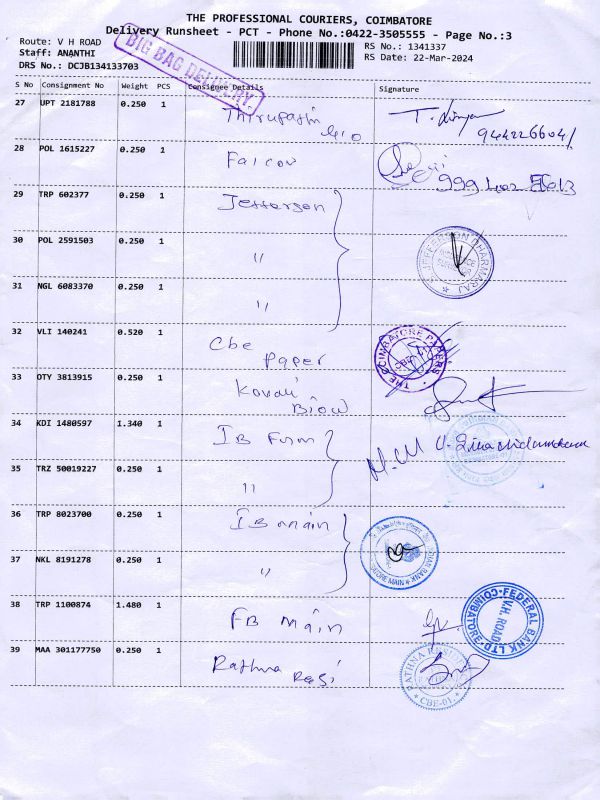 THE PROFESSIONAL COURIERS, COIMBATORE
Delivery Runsheet - PCT - Phone No.:0422-3505555 - Page No.:3
Route: V H ROAD
Staff: ANANTHI
DRS No.: DCJB134133703
RS No.: 1341337
RS Date: 22-Mar-2024
BIG BAG DELIVERY
S No Consignment No Weight PCS Consignee Details Signature
27 UPT 2181788 0.250 1 Thirupathi
28 POL 1615227 0.250 1 Falcon
29 TRP 602377 0.250 1 Jefferson
30 POL 2591503 0.250 1 "
JEFFERSON DHARMARAJ
31 NGL 6083370 0.250 1 "
32 VLI 140241 0.520 1 Cbe Paper
THE COIMBATORE PAPERS CBE
33 OTY 3813915 0.250 1 Kovai
34 KDI 1480597 1.340 1 IB Firm
35 TRZ 50019227 0.250 1 "
36 TRP 8023700 0.250 1 IB main
37 NKL 8191278 0.250 1 "
38 TRP 1100874 1.480 1 FB Main
FEDERAL BANK LTD. V.H. ROAD COIMBATORE
39 MAA 301177750 0.250 1 Rathna
CBE-01.